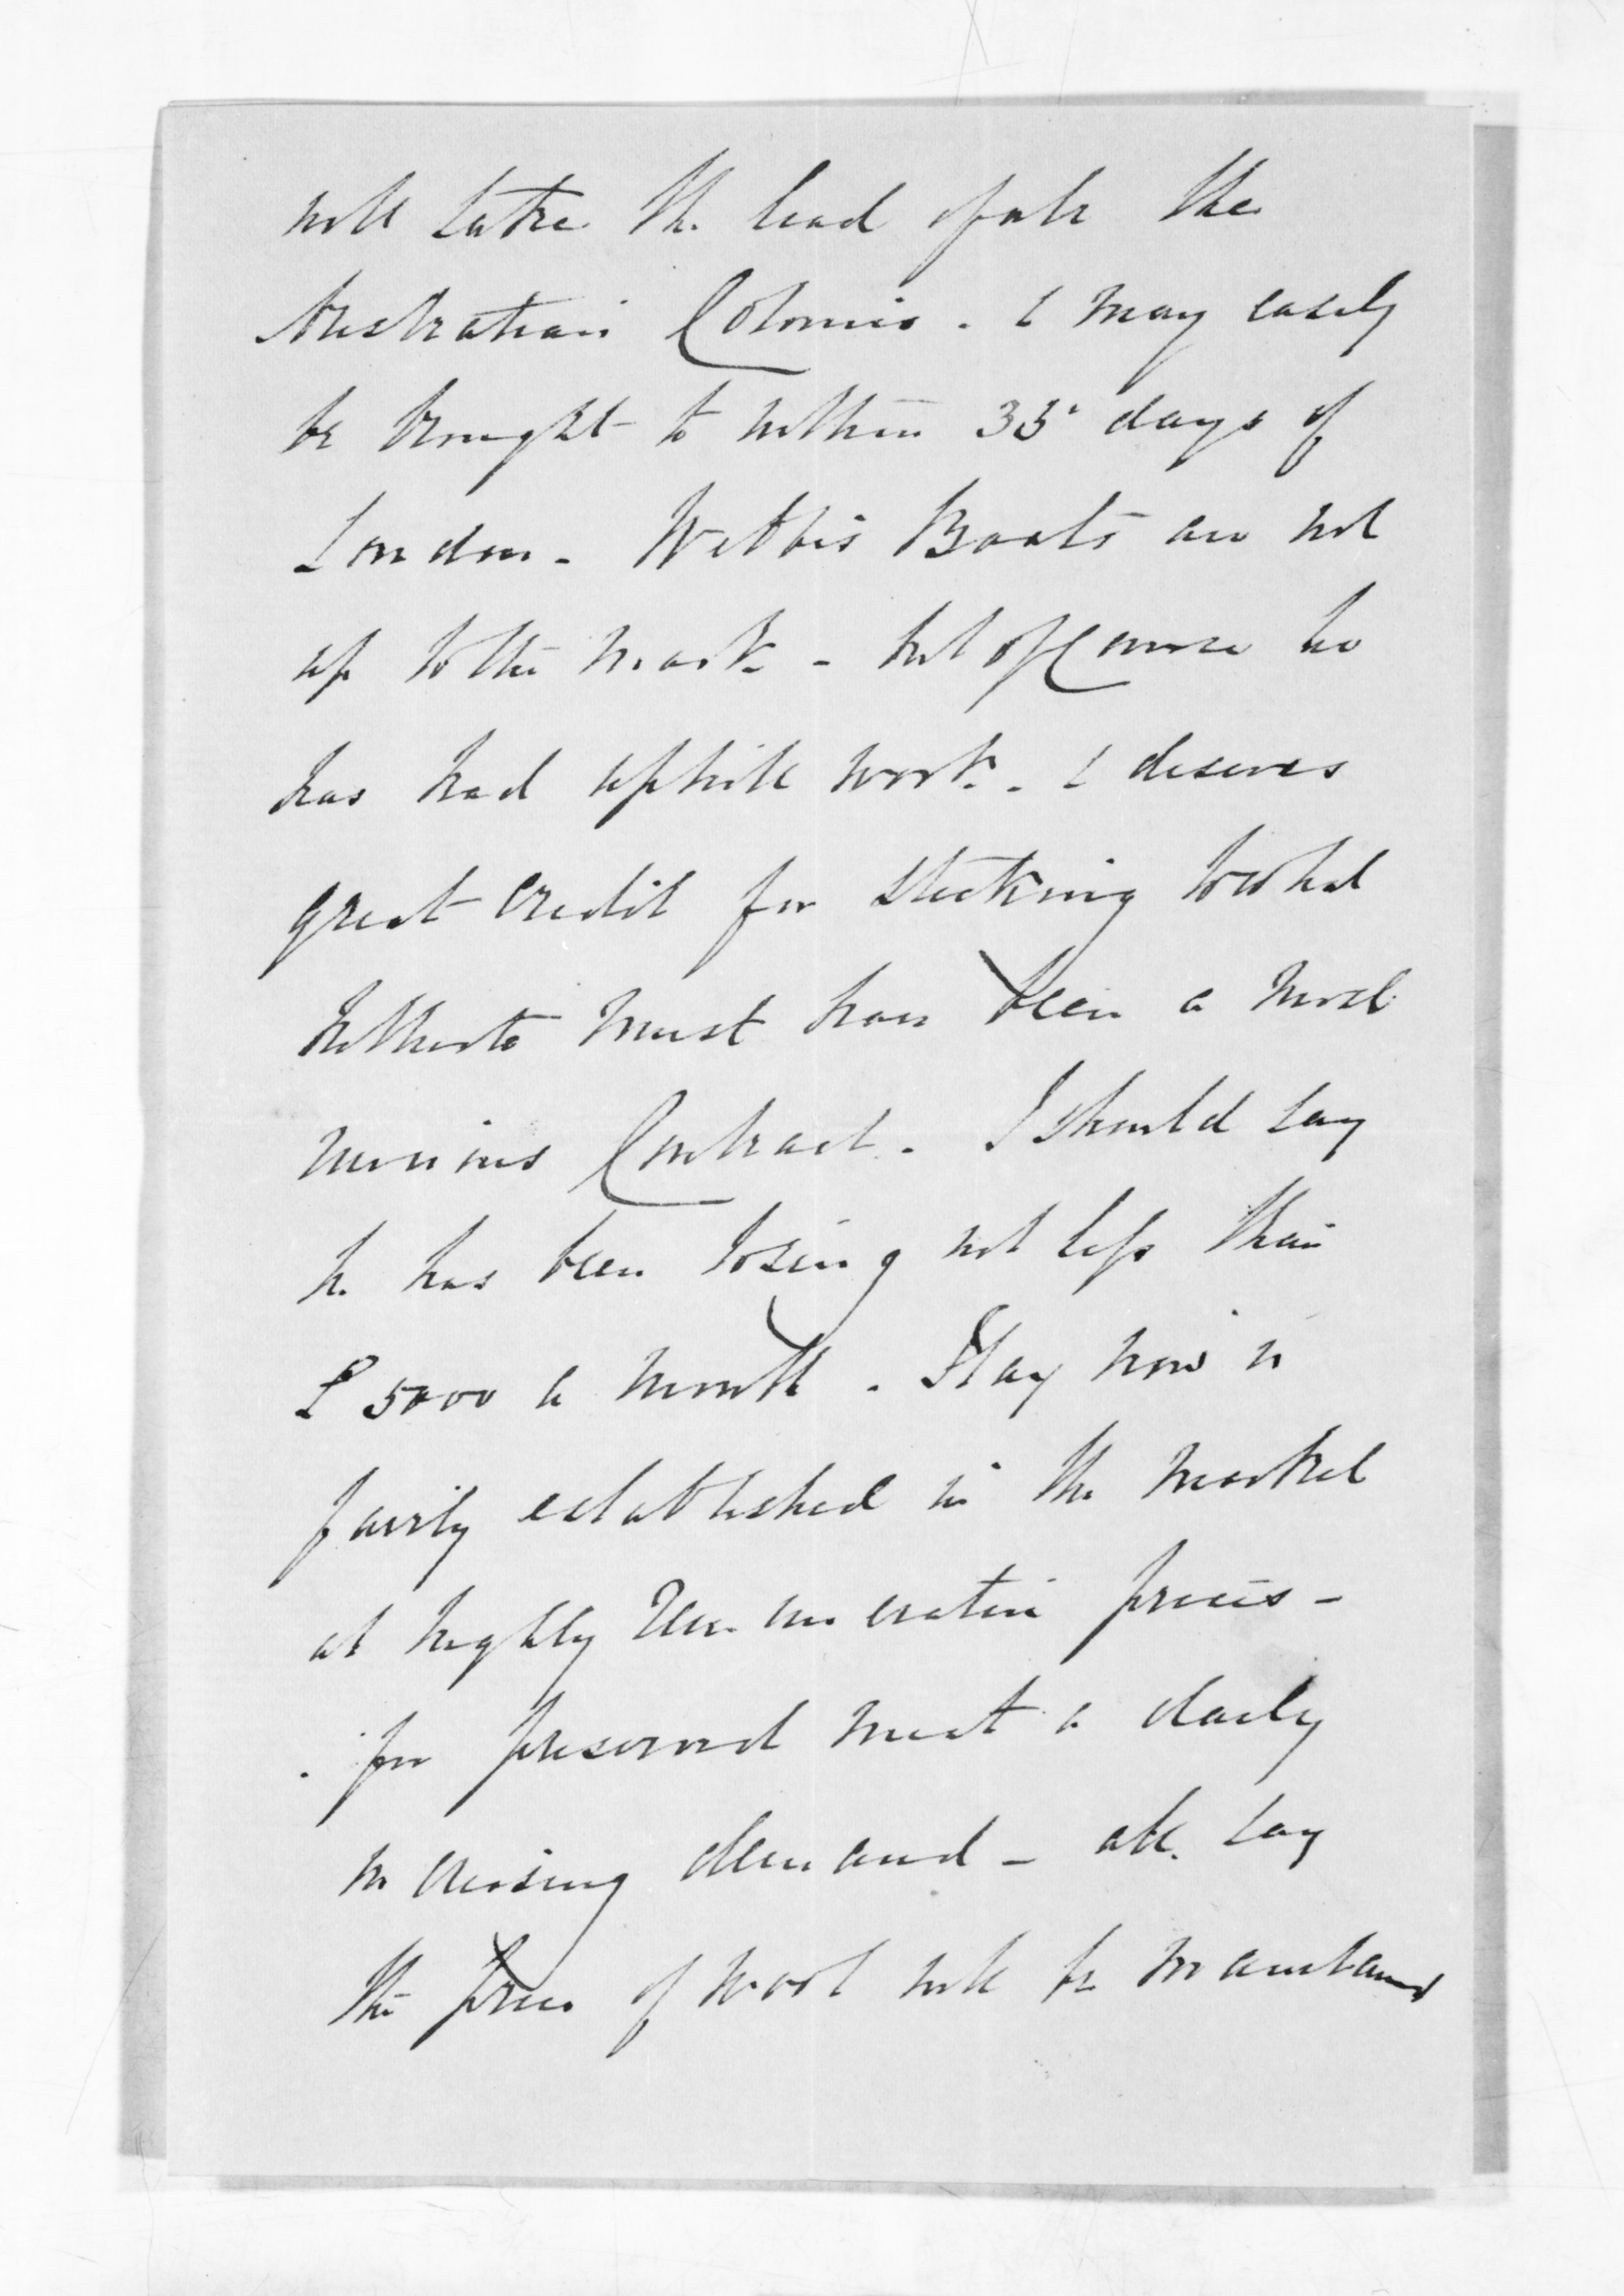 will take the lead of all the
Australian Colonies. & may easily
be brought to within 35 days of
London. Webbs Boats are not
up to the mark - but of Course he
has had uphill work. & deserves
great credit for sticking to what
hitherto must have been a most
Contract. I should say
he has been losing not less than
£5000 a month. now is
fairly established in the market
at highly remunerative prices -
for preserved meat a daily
increasing demand - all say
the price of wool will be maintained